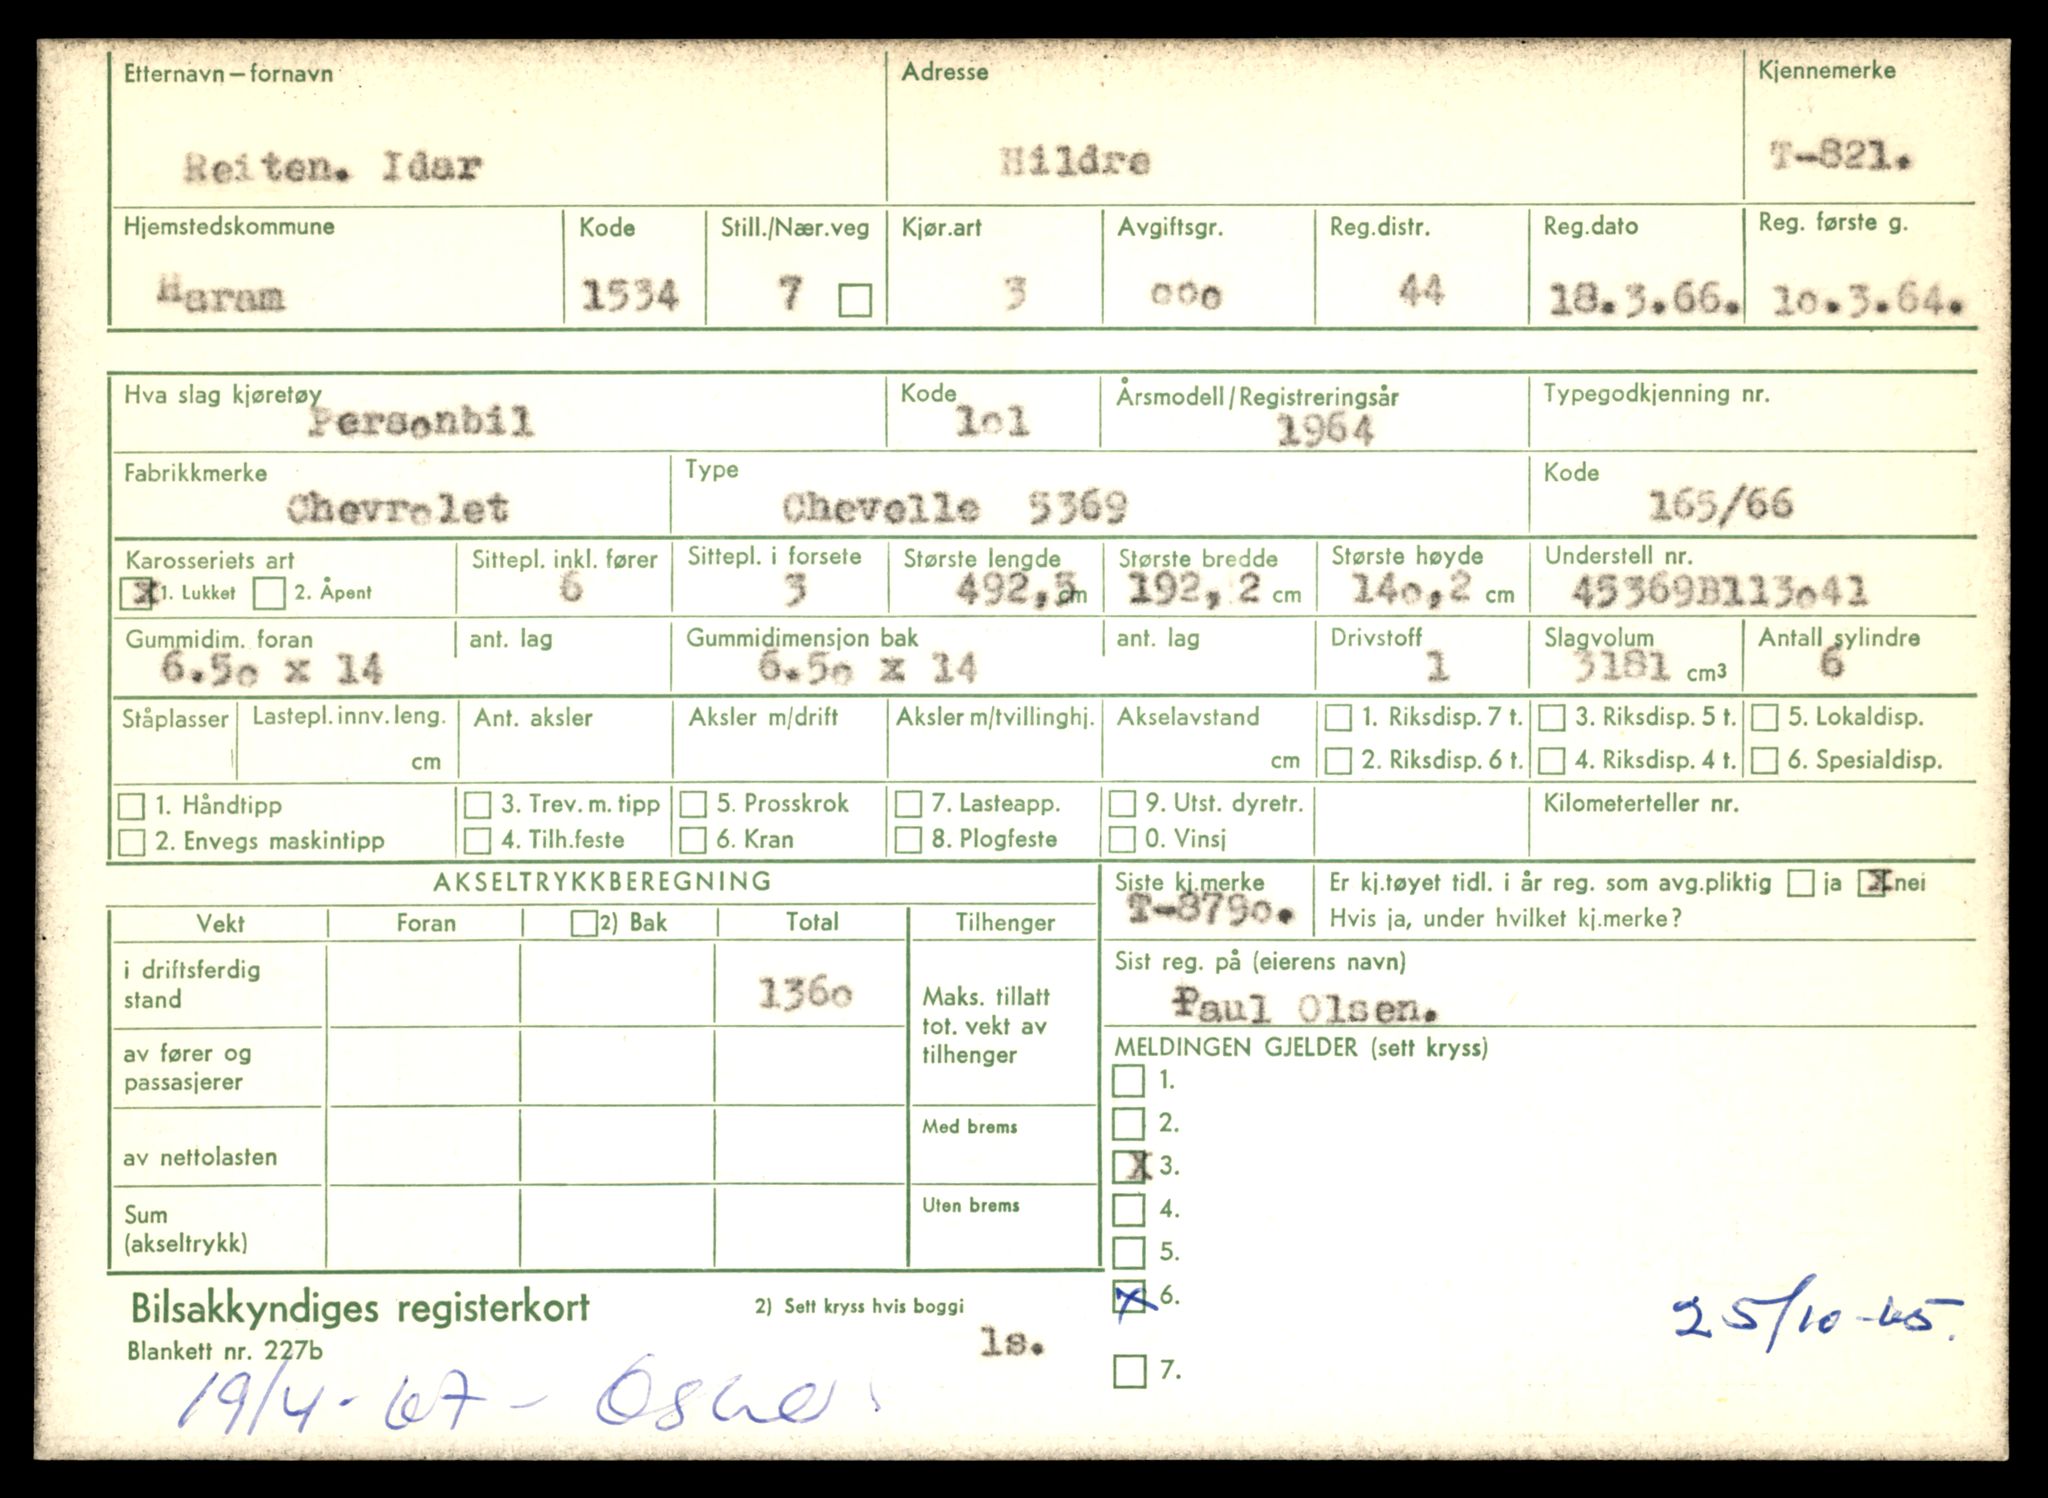 Etternavn – fornavn Adresse Kjennemerke
Reiten. Idar Hildre T-821.
Hjemstedskommune Kode Still./Nær.veg Kjør.art Avgiftsgr. Reg.distr. Reg.dato Reg. første g.
Haram 1534 7 3 ooo 44 18.3.66. 1o.3.64.
Hva slag kjøretøy Kode Årsmodell/Registreringsår Typegodkjenning nr.
Personbil 1o1 1964
Fabrikkmerke Type Kode
Chevrolet Chevelle 5369 165/66
Karosseriets art Sittepl. inkl. fører Sittepl. i forsete Største lengde Største bredde Største høyde Understell nr.
X 1. Lukket 2. Åpent 6 3 492,5 cm 192,2 cm 14o,2 cm 45369B113o41
Gummidim. foran ant. lag Gummidimensjon bak ant. lag Drivstoff Slagvolum Antall sylindre
6.5o x 14 6.5o x 14 1 3181 cm3 6
Ståplasser Lastepl. innv. leng. Ant. aksler Aksler m/drift Aksler m/tvillinghj. Akselavstand 1. Riksdisp. 7 t. 3. Riksdisp. 5 t. 5. Lokaldisp.
cm cm 2. Riksdisp. 6 t. 4. Riksdisp. 4 t. 6. Spesialdisp.
1. Håndtipp 3. Trev. m. tipp 5. Prosskrok 7. Lasteapp. 9. Utst. dyretr. Kilometerteller nr.
2. Envegs maskintipp 4. Tilh.feste 6. Kran 8. Plogfeste 0. Vinsj
AKSELTRYKKBEREGNING Siste kj.merke Er kj.tøyet tidl. i år reg. som avg.pliktig ja X nei
T-879o. Hvis ja, under hvilket kj.merke?
Vekt Foran 2) Bak Total Tilhenger
Sist reg. på (eierens navn)
i driftsferdig
stand 136o Maks. tillatt
tot. vekt av
tilhenger
Paul Olsen.
av fører og
passasjerer
MELDINGEN GJELDER (sett kryss)
1.
av nettolasten Med brems 2.
X 3.
Sum
(akseltrykk) Uten brems 4.
5.
Bilsakkyndiges registerkort 2) Sett kryss hvis boggi X 6. 25/10-65.
Blankett nr. 227b ls.
7.
19/4-67-